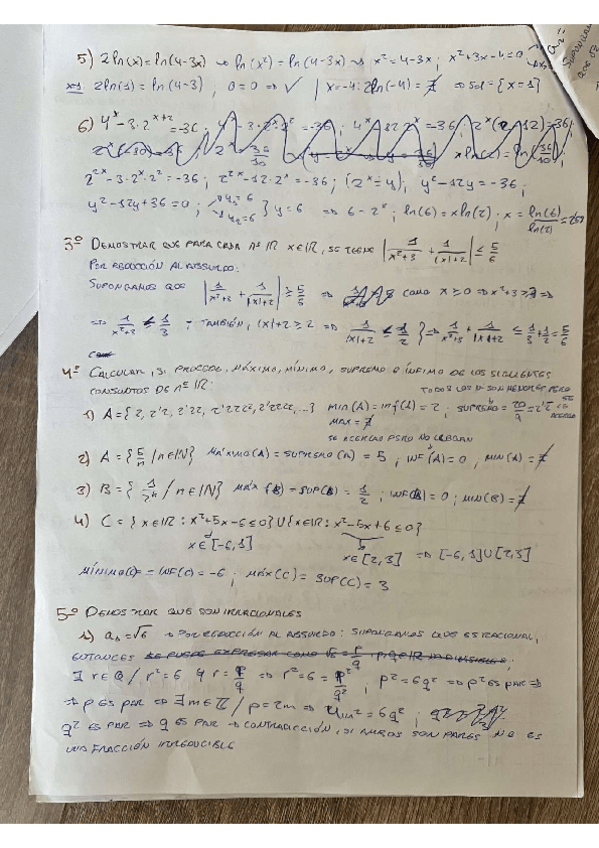 5) 2ln(x) = ln(4-3x) → ln(x²) = ln(4-3x) → x² = 4-3x ; x²+3x-4=0
x=1 2ln(1) = ln(4-3) ; 0=0 ⇒ ✓ | x=-4: 2ln(-4) = ∄ ⇒ Sol = {x=1}
6) 4^x - 3·2^(x+2) = -36 ;
2^(2x) - 3·2^x·2² = -36 ; 2^(2x) - 12·2^x = -36 ; (2^x = y) ; y² - 12y = -36 ;
y² - 12y + 36 = 0 ; y₁=6 y₂=6 } y=6 ⇒ 6 = 2^x ; ln(6) = xln(2) ; x = ln(6)/ln(2)
3º DEMOSTRAR QUE PARA CADA nº IR x∈IR, SE TIENE | 1/(x²+3) + 1/(|x|+2) | ≤ 5/6
POR REDUCCIÓN AL ABSURDO:
SUPONGAMOS QUE | 1/(x²+3) + 1/(|x|+2) | ≥ 5/6 ⇒ COMO x ≥ 0 ⇒ x²+3 ≥ 3 ⇒
⇒ 1/(x²+3) ≤ 1/3 ; TAMBIÉN, |x|+2 ≥ 2 ⇒ 1/(|x|+2) ≤ 1/2 } ⇒ 1/(x²+3) + 1/(|x|+2) ≤ 1/3 + 1/2 = 5/6
4º CALCULAR, SI PROCEDE, MÁXIMO, MÍNIMO, SUPREMO E ÍNFIMO DE LOS SIGUIENTES
CONJUNTOS DE nº IR:
TODOS LOS nº SON MENORES PERO SE ACERCAN
1) A = {2, 2'2, 2'22, 2'222, 2'2222, ...} MIN(A) = inf(A) = 2 ; SUPREMO = 20/9 = 2'2
MAX = ∄
SE ACERCAN PERO NO LLEGAN
2) A = {5/n / n∈IN} MÁXIMO(A) = SUPREMO(A) = 5 ; INF(A) = 0 ; MIN(A) = ∄
3) B = {1/2^n / n∈IN} MÁX(B) = SUP(B) = 1/2 ; INF(B) = 0 ; MIN(B) = ∄
4) C = {x∈IR : x²+5x-6≤0} U {x∈IR : x²-5x+6≤0}
x∈[-6,1] x∈[2,3] ⇒ [-6,1]U[2,3]
MÍNIMO(C) = INF(C) = -6 ; MÁX(C) = SUP(C) = 3
5º DEMOSTRAR QUE SON IRRACIONALES
1) = √6 → POR REDUCCIÓN AL ABSURDO: SUPONGAMOS QUE ES RACIONAL,
ENTONCES SE PUEDE EXPRESAR COMO √6 = p/q
∃ r∈Q / r²=6 y r = p/q ⇒ r² = 6 = p²/q² ; p² = 6q² ⇒ p² ES PAR ⇒
⇒ p ES PAR ⇒ ∃ m∈Z / p = 2m ⇒ 4m² = 6q² ;
q² ES PAR ⇒ q ES PAR → CONTRADICCIÓN, SI AMBOS SON PARES NO ES
UNA FRACCIÓN IRREDUCIBLE